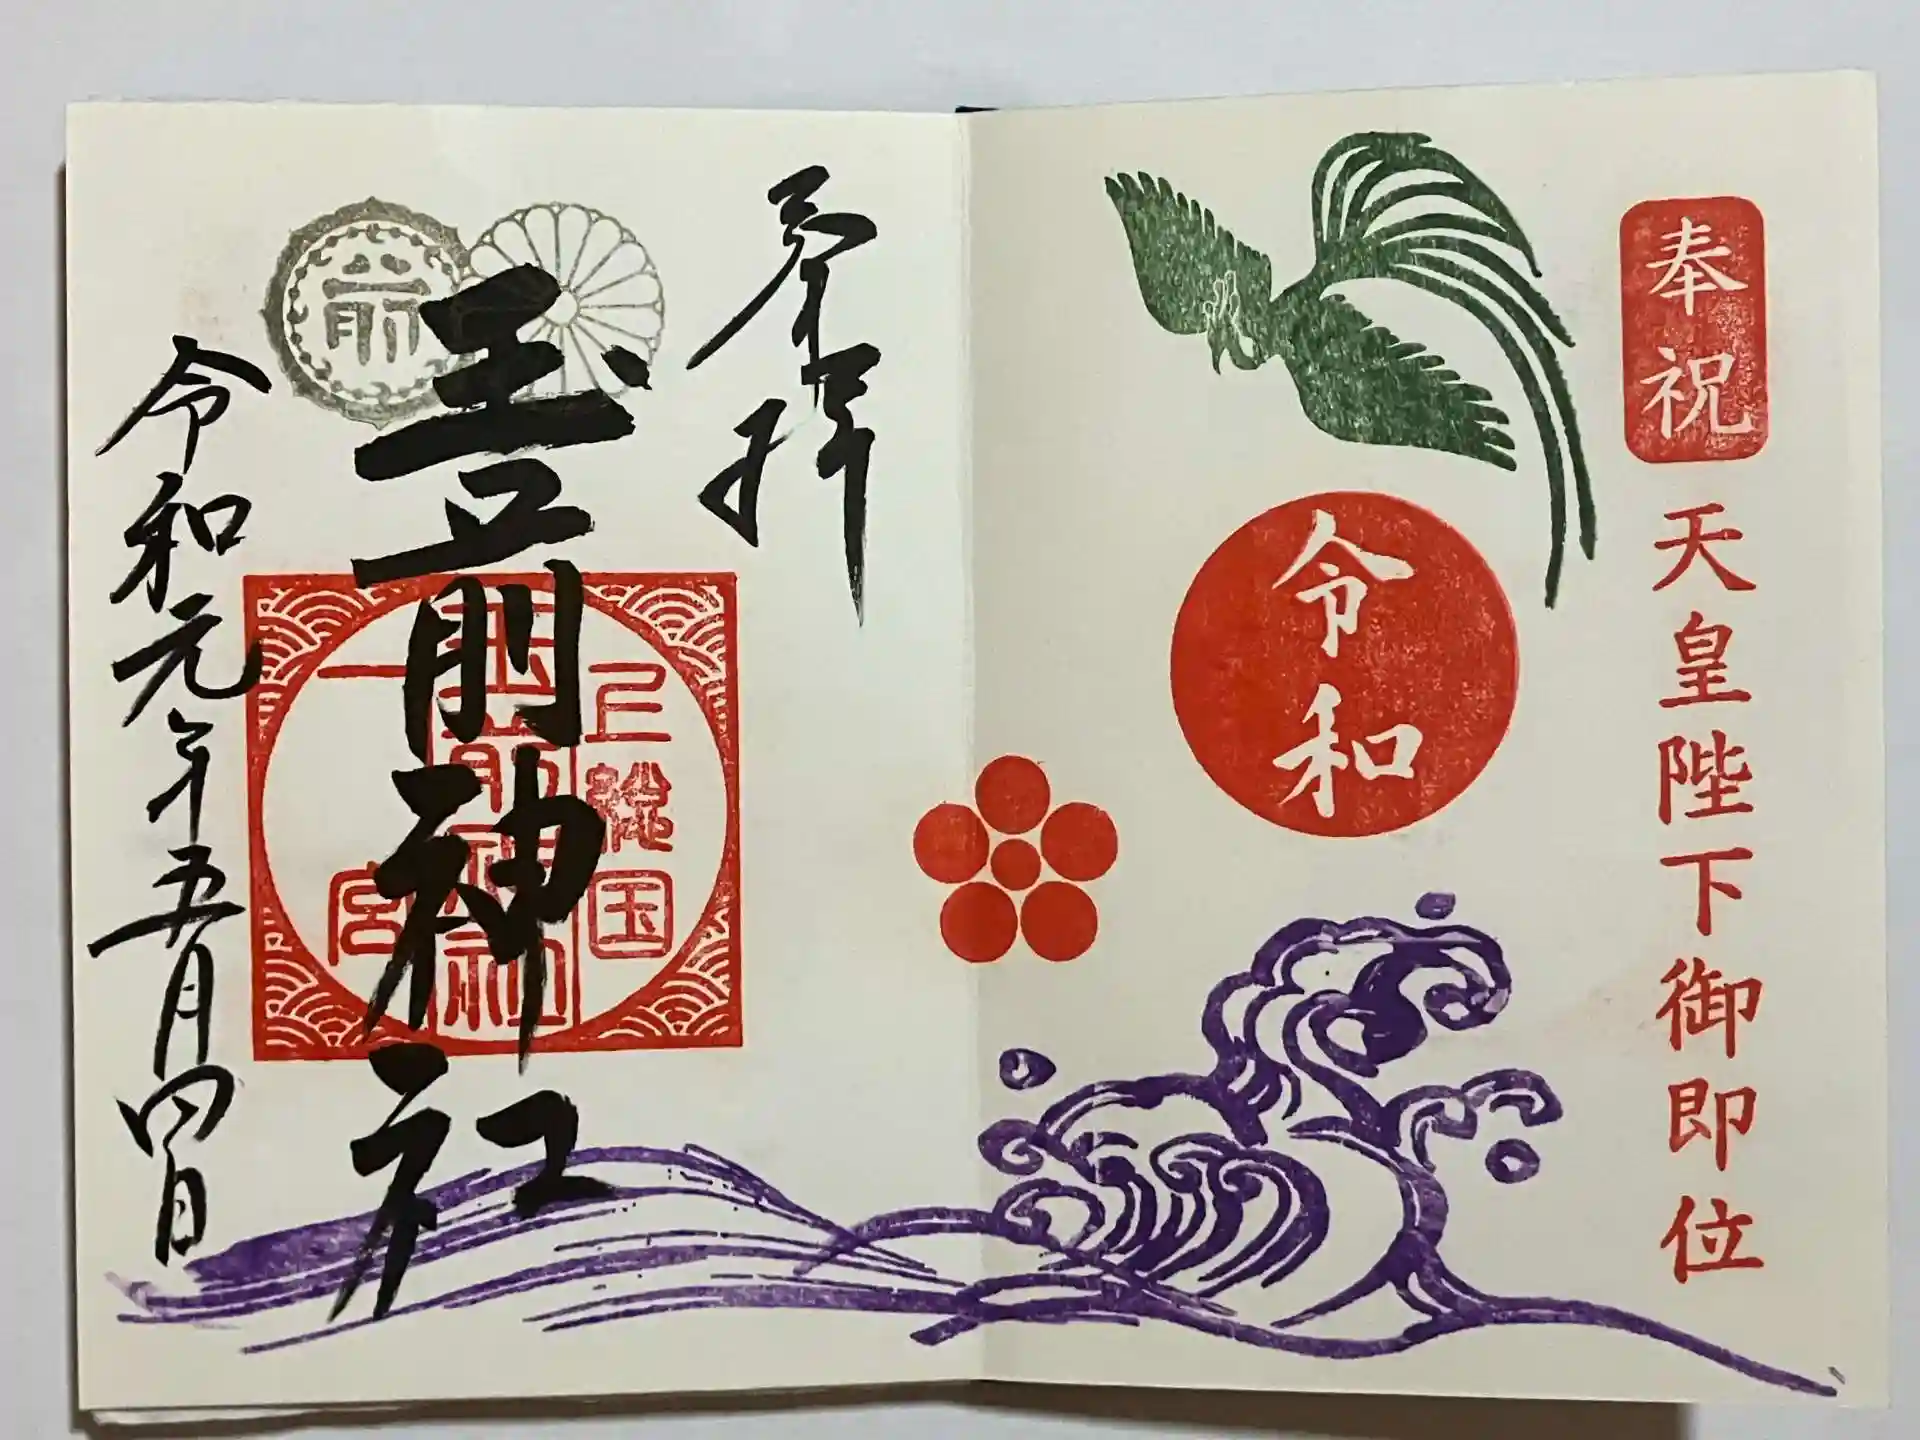 奉祝
天皇陛下御即位
令和
奉拝
玉前神社
上総国
玉前神社
一宮
前
令和元年五月四日